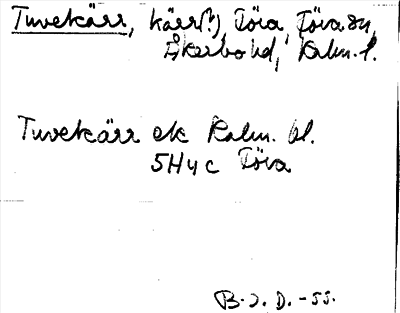 Tuvekärr, kärr(?), Föra, Föra sn,
Åkerbo hd, Kalm. l.
Tuvekärr ek Kalm. bl.
5H4c Föra
B. J. D. -55.